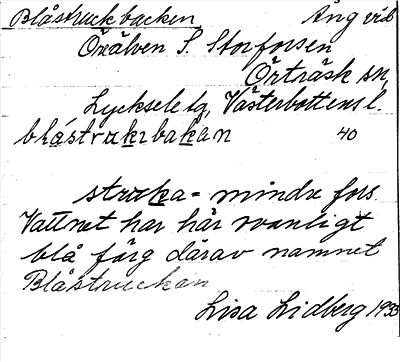 Blåstruckbacken Äng vid
Öreälven S. Storforsen
Örträsk sn,
Lycksele lg, Västerbottens l.
blåstrukɩbakan 40
struka = mindre fors.
Vattnet har här ovanligt
blå färg därav namnet
Blåstruckan
Lisa Lidberg 1933